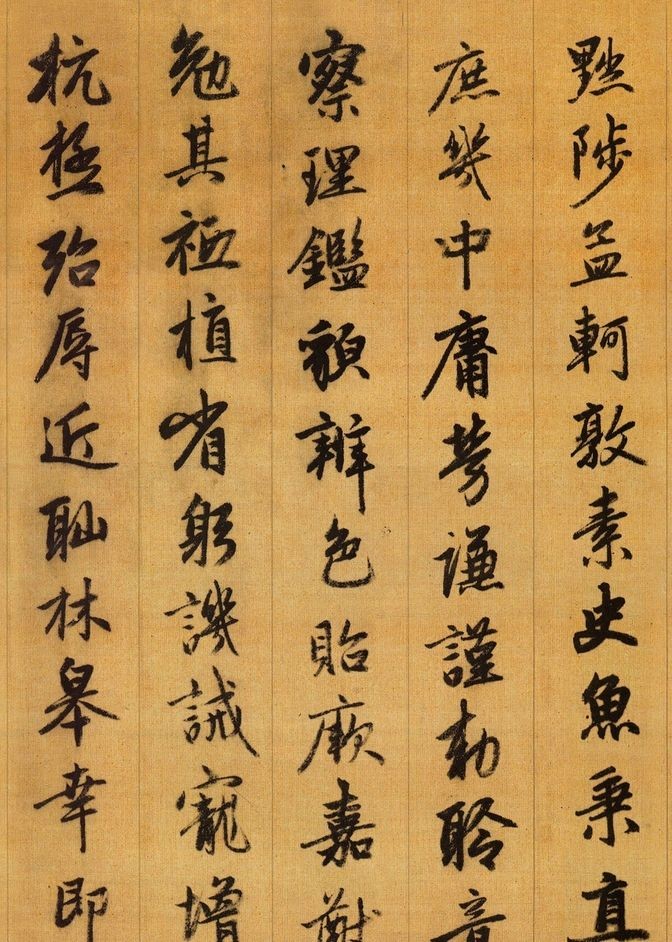 黜陟孟軻敦素史魚秉直
庶幾中庸劳謙謹勑聆音
察理鑑貌辨色貽厥嘉猷
勉其祗植省躬譏誡寵增
抗極殆辱近耻林皋幸即